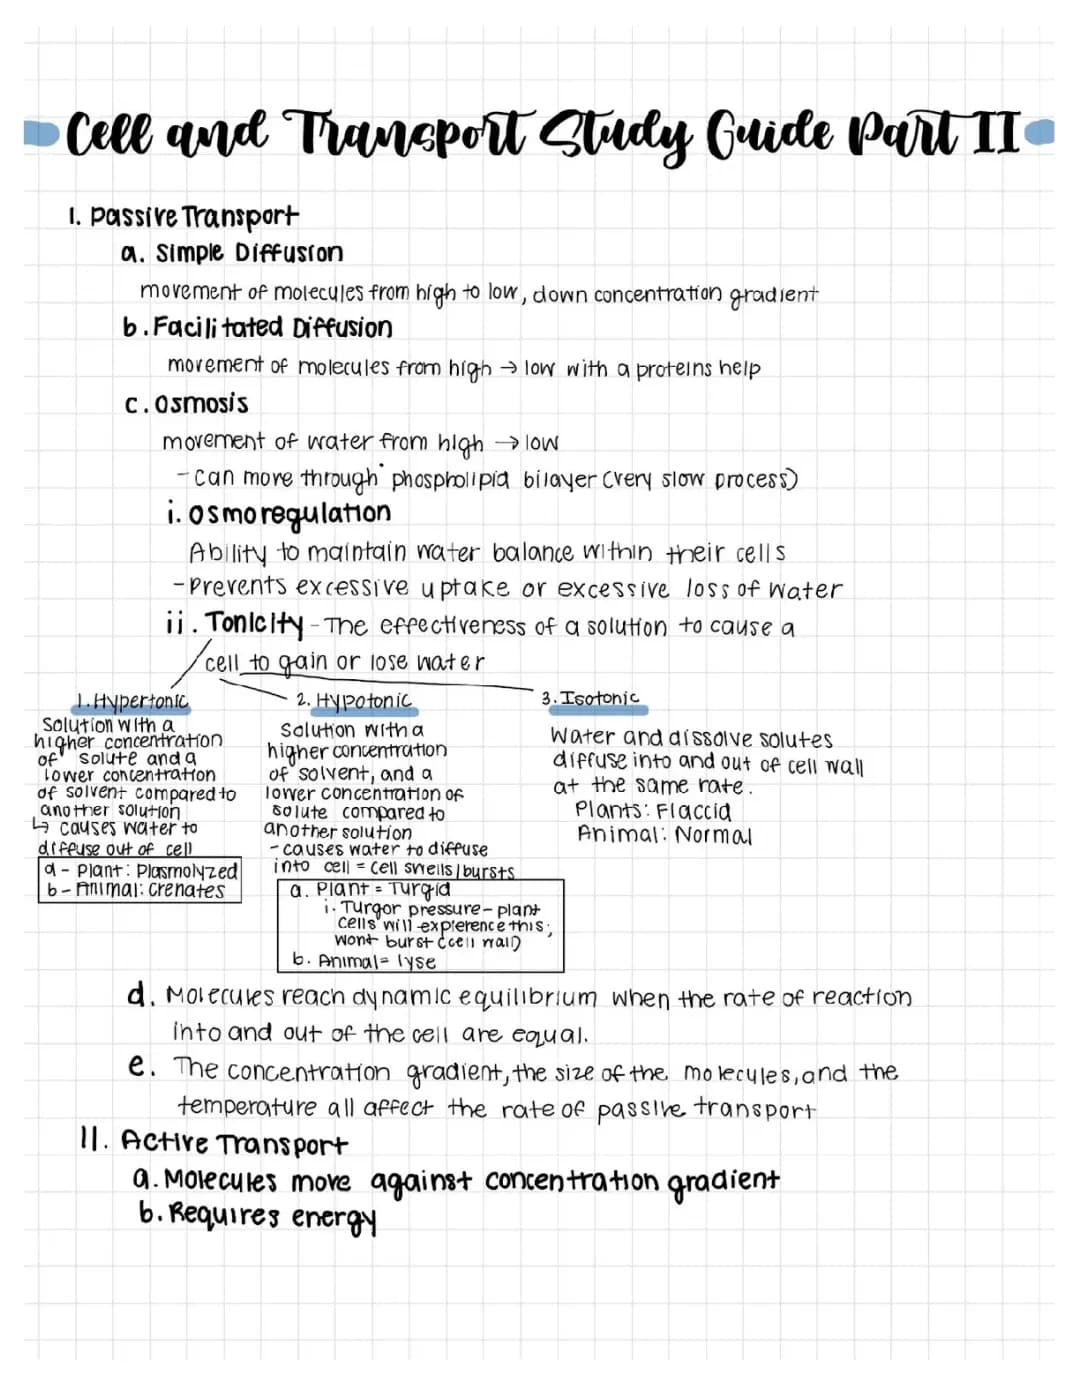 Cell and Transport Study Guide Part II
I. Passive Transport
a. Simple Diffusion
movement of molecules from high to low, down concentration gradient
b. Facilitated Diffusion
movement of molecules from high → low with a proteins help
c. Osmosis
movement of water from high → low
- can move through phospholipid bilayer (very slow process)
i. Osmoregulation
Ability to maintain water balance within their cells
- Prevents excessive uptake or excessive loss of water
ii. Tonicity - The effectiveness of a solution to cause a
cell to gain or lose water
1. Hypertonic
Solution with a
higher concentration
of solute and a
lower concentration
of solvent compared to
another solution
↳ causes water to
diffuse out of cell
a - Plant: Plasmolyzed
b - Animal: crenates
2. Hypotonic
Solution with a
higher concentration
of solvent, and a
lower concentration of
solute compared to
another solution
- causes water to diffuse
into cell = cell swells/bursts
a. Plant = Turgid
i. Turgor pressure - plant
cells will expierence this;
wont burst (cell wall)
b. Animal = lyse
3. Isotonic
Water and dissolve solutes
diffuse into and out of cell wall
at the same rate.
Plants: Flaccid
Animal: Normal
d. Molecules reach dynamic equilibrium when the rate of reaction
into and out of the cell are equal.
e. The concentration gradient, the size of the molecules, and the
temperature all affect the rate of passive transport
II. Active Transport
a. Molecules move against concentration gradient
b. Requires energy